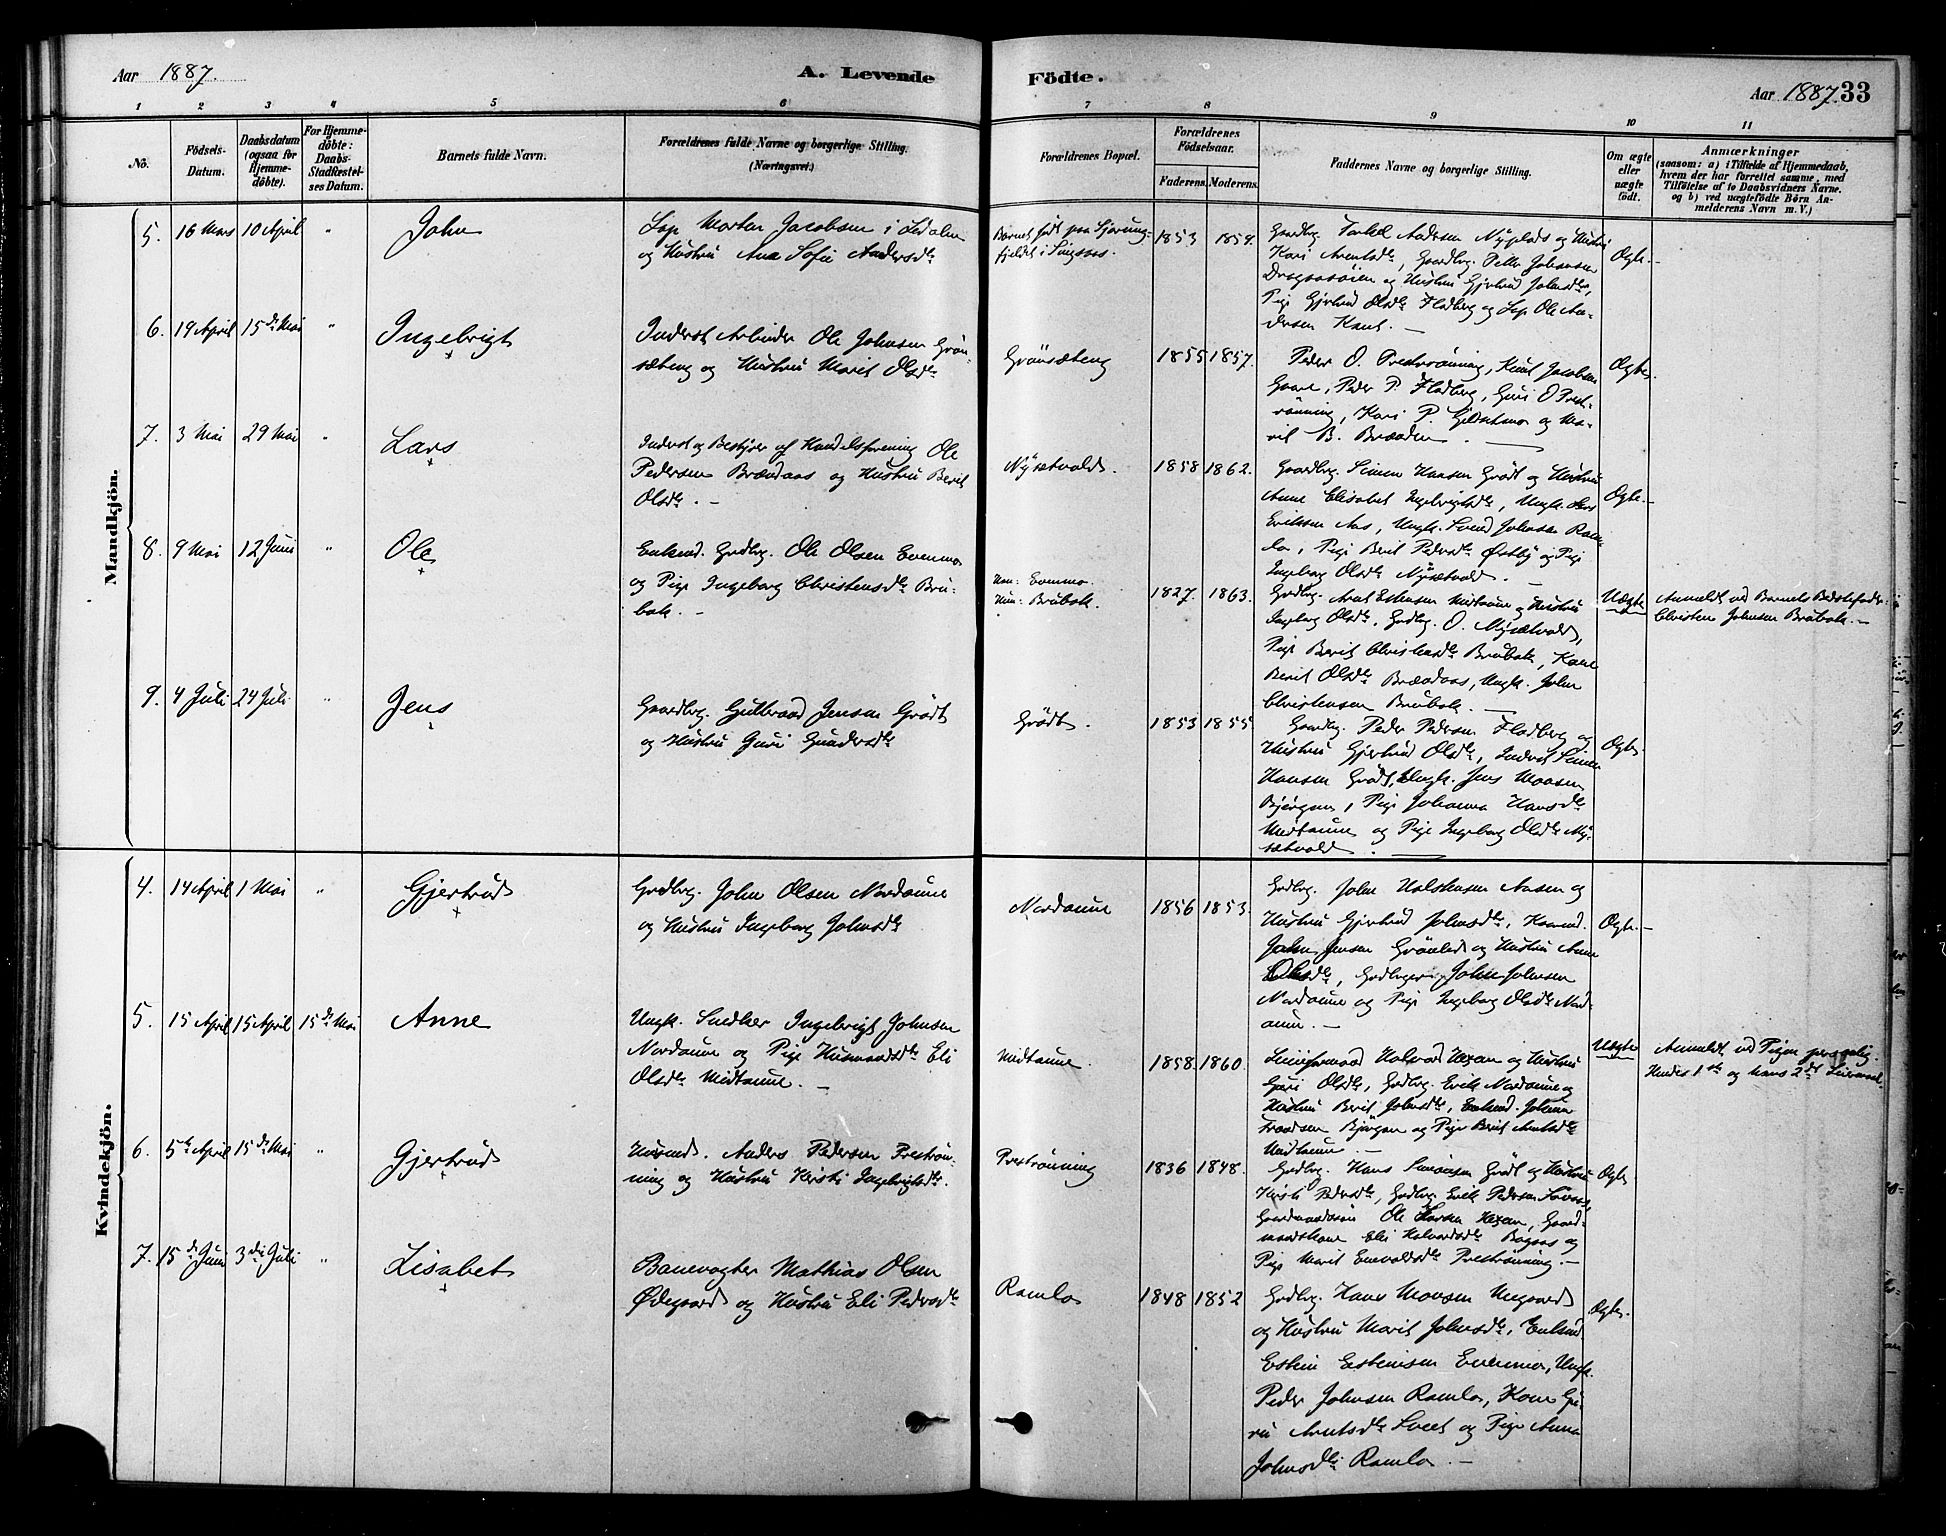 Aar 1887.
A. Levende
Födte.
Aar 1887. 33
1 2 3 4 5 6 7 8 9 10 11
No.
Födsels-
Datum.
Daabsdatum
(ogsaa for
Hjemme-
döbte).
For Hjemme-
döbte:
Daabs-
Stadfæstel-
ses Datum.
Barnets fulde Navn.
Forældrenes fulde Navne og borgerlige Stilling.
(Næringsvei.)
Forældrenes Bopæl.
Forældrenes
Födselsaar.
Faderens. Moderens.
Faddernes Navne og borgerlige Stilling.
Om ægte
eller
uægte
födt.
Anmærkninger
(saasom: a) i Tilfælde af Hjemmedaab,
hvem der har forrettet samme, med
Tilföielse af to Daabsvidners Navne.
og b) ved uægtefödte Börn An-
melderens Navn m. V.)
Mandkjön.
5. 16 Mars 10 April " John
Morten Jacobsen i
og Hustru Ana Sofie Andersdtr
Barnet født paa
fjeldet i Singsaas.
1853 1854.
Gaardbrg. Andersen Nyplads og Hustru
Kari Arentsdtr, Gaardbrg. Peter Johansen
og Hustru Gjertrud Johnsdtr,
Pige Gjertrud Olsdtr Flodberg og Ole An-
dersen
Ægte.
6. 19 April 15de Mai " Ingebrigt
Inderst Arbeider Ole Johnsen Grön-
sæteng og Hustru Marit Olsdtr
Grönsæteng
1855 1857.
Peder O. Preströnning, Knut Jacobsen
Peder P. Flodberg, Guri O Prest-
rönning, Kari P. og Ma-
rit B.
Ægte.
7. 3 Mai 29 Mai " Lars
Inderst og Bestyrer af Handelsforening Ole
Pedersen Brændaas og Hustru Berit
Olsdtr. -
Nysætvold.
1858 1862.
Gaardbrg. Simen Hansen Grödt og Hustru
Anne Elisabet Ingebrigtsdtr, Ungk. Lars
Eriksen Aas, Ungk. Svend Johnsen Ram-
lo, Pige Berit Pedersdtr Østby og Pige
Ingeborg Olsdtr Nysætvold. -
Ægte. -
8. 9 Mai 12 Juni " Ole
Enkemd. Grdbrg. Ole Olsen Evenmo
og Pige Ingeborg Christensdtr Bru-
bak. -
Han: Evenmo.
Hun: Brubak.
1827. 1863.
Grdbrg. Arnt Estensen Midtaune og Hustru
Ingeborg Olsdtr, Grdbrg. O. Nysætvold,
Pige Berit Christensdtr Brubak, Kone
Berit Olsdtr Brændaas, Ungk. John
Christensen Brubak. -
Uægte
Anmeldt ved Barnets Bedstefader
Christen Johnsen Brubak. -
9. 4 Juli 24 Juli " Jens
Gaardbrg. Gulbrand Jensen Grödt
og Hustru Guri Gundersdtr
Grödt.
1853 1855
Gaardbrg. Peder Pedersen Flodberg og
Hustru Gjertrud Olsdtr, Inderst Simen
Hansen Grödt, Ungk. Jens Monsen
Bjørgen, Pige Johanna Hansdtr
Midtaune og Pige Ingeborg Olsdtr Ny-
sætvold.
Ægte
Kvindekjön.
4. 14 April 1 Mai " Gjertrud
Grdbrg. John Olsen Nordaune
og Hustru Ingeborg Johnsdtr
Nordaune
1856 1853.
Grdbrg. John Halstensen Aasen og
Hustru Gjertrud Johnsdtr,
John Jensen Grönli og Hustru Anne
Olsdtr, Grdbrger John Johnsen
Nordaune og Pige Ingeborg Olsdtr Nord-
aune. -
Ægte. -
5. 15 April 15 April 15de Mai Anne
Ungk. Snedker Ingebrigt Johnsen
Nordaune og Pige Husmandsdtr Eli
Olsdtr Midtaune. -
Midtaune
1858. 1860.
Halvard Hexem og Hustru
Guri Olsdtr, Grdbrg. Erik Nordaune og
Hustru Berit Johnsdtr, Enkemd. Johan
Bjørgen og Pige Berit Arntsdtr
Midtaune. -
Uægte
Anmeldt ved Pigen personlig.
Hendes 1ste og hans 2det Leiermaal.
6. 5te April 15de Mai " Gjertrud
Husmd. Anders Pedersen Preströn-
ning og Hustru Kirsti Ingebrigtsdtr.
Preströnning
1836 1848.
Grdbrg. Hans Simonsen Grödt og Hustru
Kirsti Pedersdtr, Grdbrg. Erik Pedersen
Ole Larsen Hexem, Gaard-
mandskone Eli Halvardsdtr og
Pige Marit Enevoldsdtr Preströnning. -
Ægte
7. 15de Juni 3die Juli " Lisabet
Banevogter Mathias Olsen
Ødegaard og Hustru Eli Pedersdtr
Ramlo
1848 1852
Grdbrg. Hans Monsen Ungaard
og Hustru Marit Johnsdtr, Enkemd
Estein Esteinsen Evenmo, Ungk.
Peder Johnsen Ramlo, Kone Gu-
ri Arntsdtr og Pige Anna
Johnsdtr Ramlo. -
Ægte.